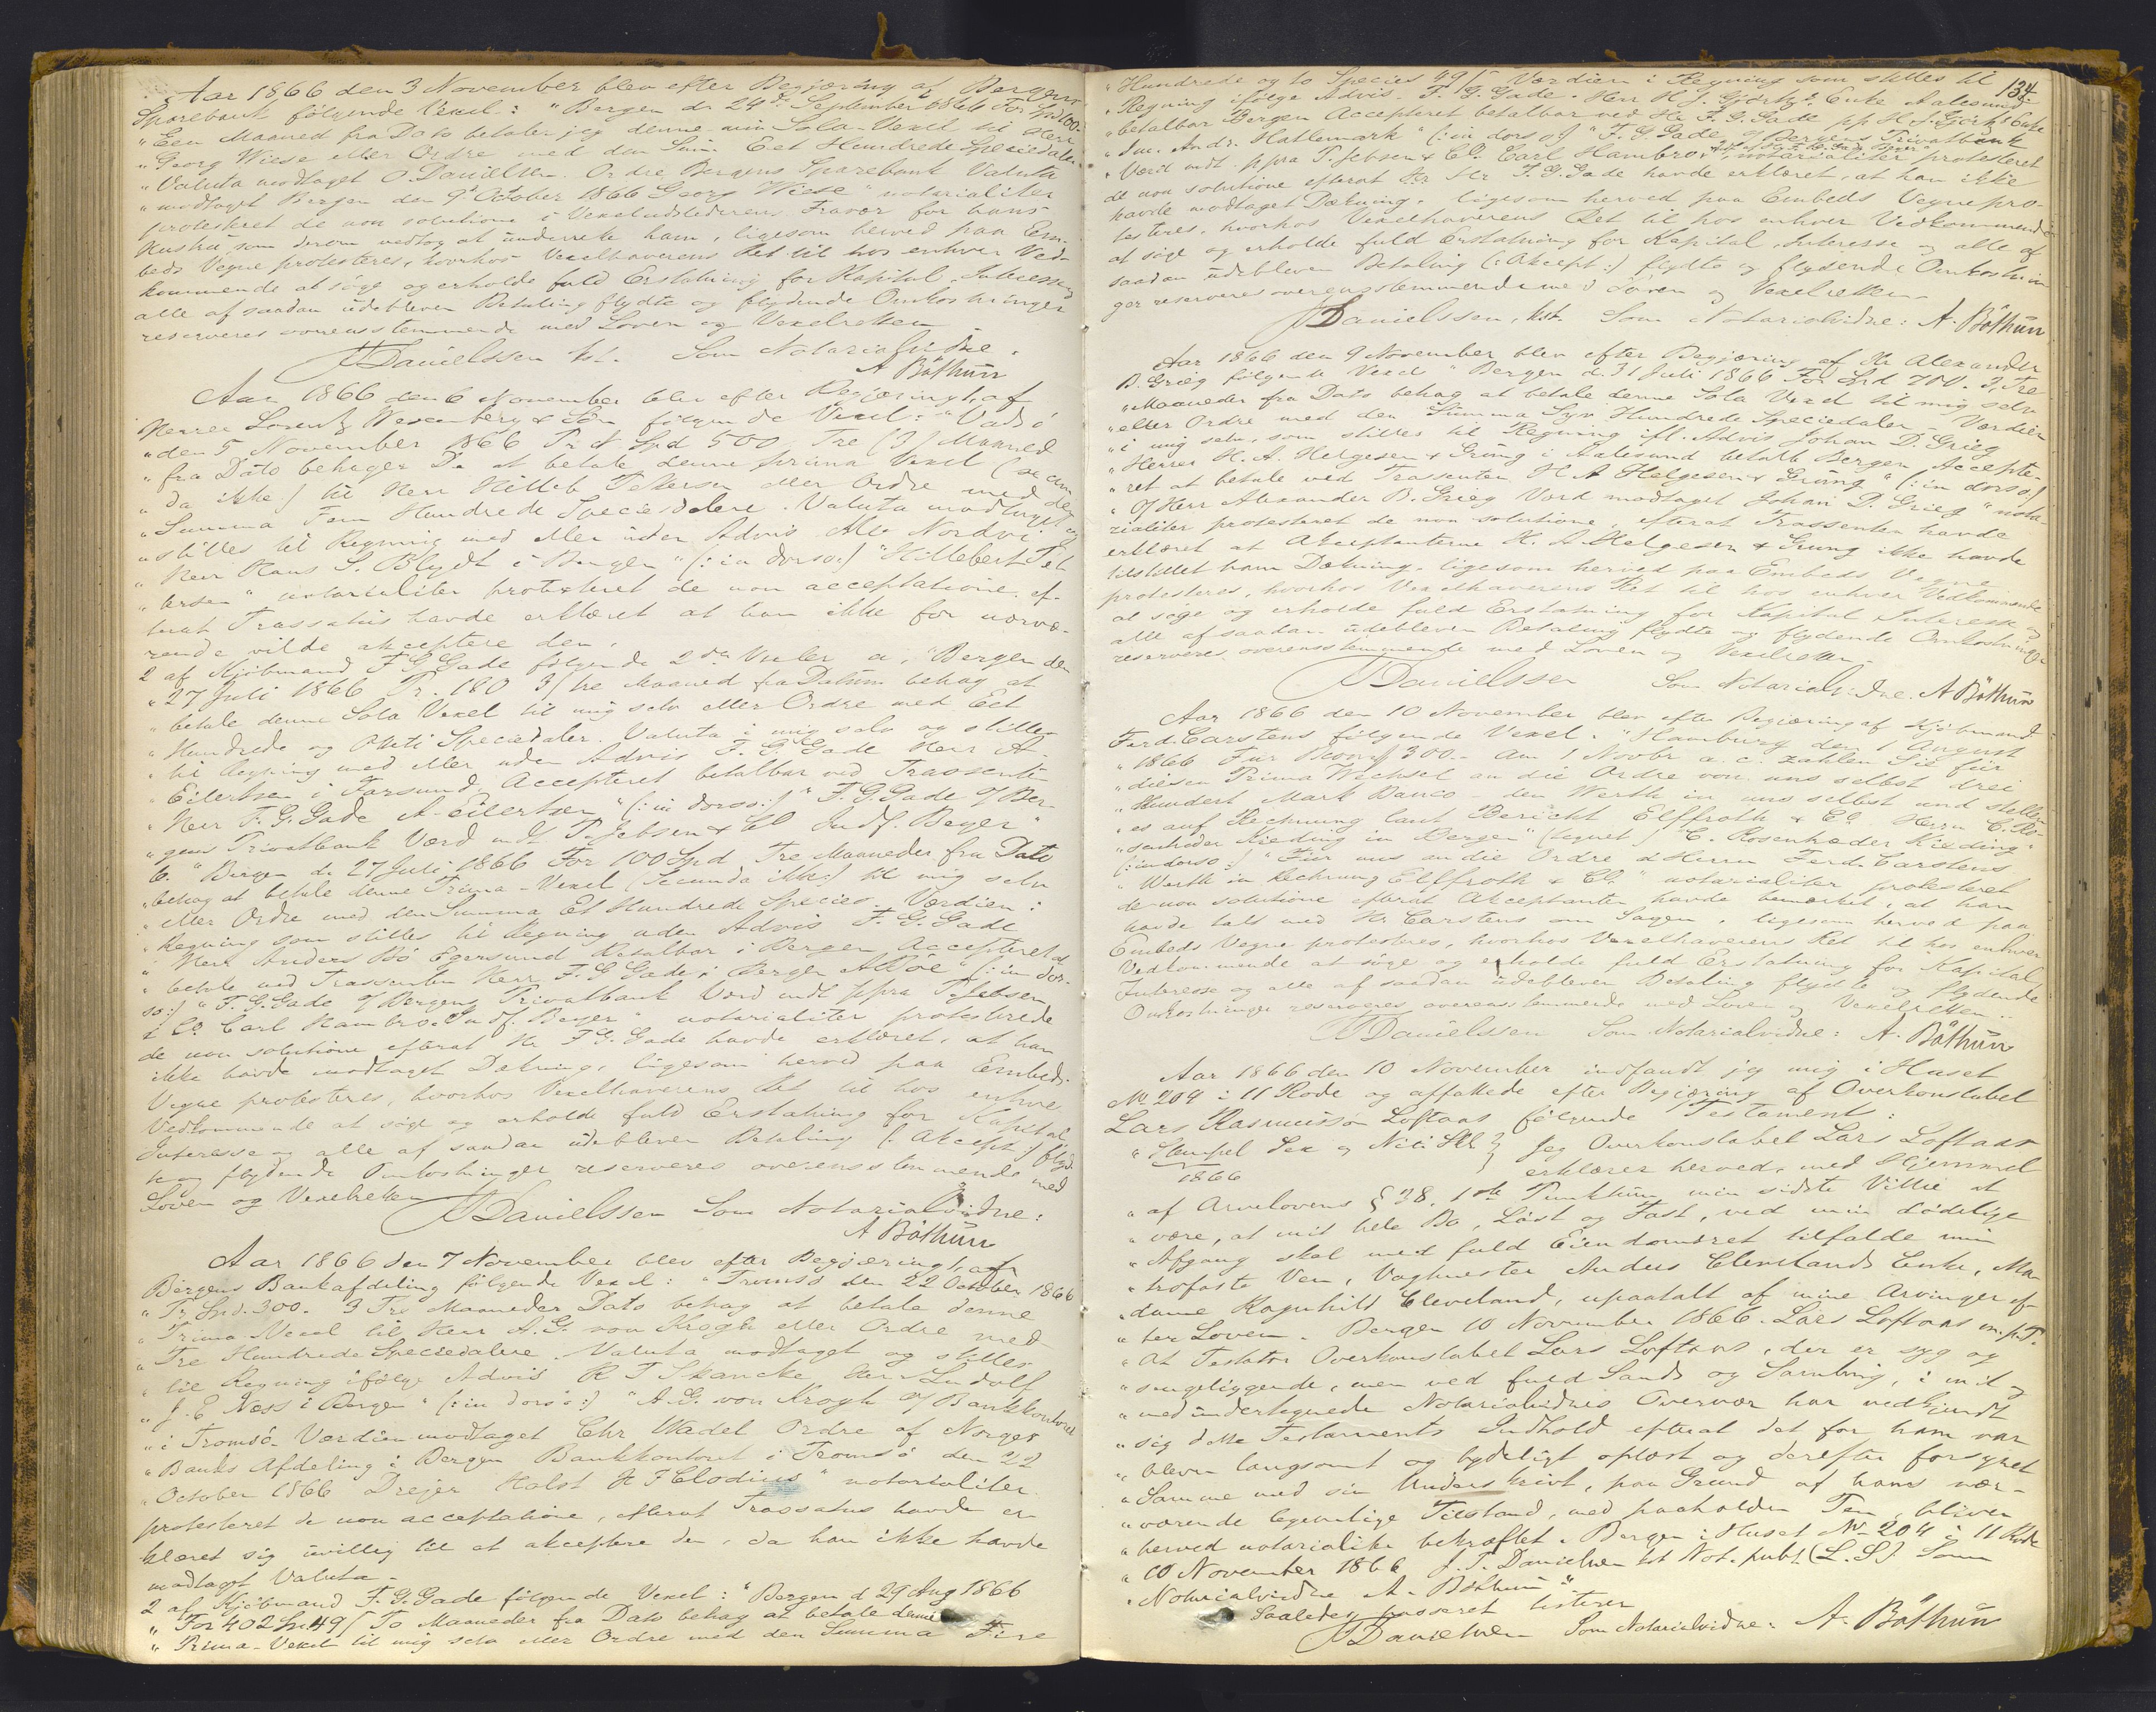 Aar 1866 den 3 November blev efter Begjæring af Bergens
Sparebank følgende Vexel: "Bergen dn 24de September 1866 For Spd 100.
"Een Maaned fra Dato betaler jeg denne min Sola-Vexel til Herr
"Georg Wiese eller Ordre med den Sum Eet Hundrede Speciedaler
"Valuta modtaget O Danielsen. Ordre Bergens Sparebank Valuta
"modtaget Bergen den 9de October 1866 Georg Wiese" notarialiter
protesteret de non solutione i Vexeludstederens Fravær for hans
Hustru som derom vedtog at underrette ham, ligesom herved paa Em-
beds Vegne protesteres, hvorhos Vexelhaverens Ret til hos enhver Ved-
kommende at søge og erholde fuld Erstatning for Kapital, Interesse og
alle af saadan udebleven Betaling flydte og flydende Omkostninger
reserveres overensstemmende med Loven og Vexelretten
JJDanielssen kst. Som Notarialvidne.
A Böthun
Aar 1866 den 6 November blev efter Begjæring 1, af
Herrer Lorentz Wesenberg & Søn følgende Vexel: "Vadsø
"den 5 November 1866 Pr. Spd 500 Tre (3) Maaned
"fra Dato behager De at betale denne prima Vexel (secun
"da ikke) til Herr Hilleb Tellersen eller Ordre med den
"Summa Fem Hundrede Speciedalere. Valuta modtaget og
"stilles til Regning med eller uden Advis Alb Nordvi.
"Herr Hans S. Blydt i Bergen" (:in dorso:) "Hillebert Tel
"lersen" notarialiter protesteret de non acceptatione, ef-
terat Trassatus havde erklæret at han ikke for nærvæ-
rende vilde akceptere den.
2 af Kjøbmand F G Gade følgende 2de Vexler a, "Bergen den
"27 Juli 1866 Pr. 180 3/ tre Maaned fra Datum behag at
"betale denne Sola Vexel til mig selv eller Ordre med Eet
"Hundrede og Otteti Speciedaler. Valuta i mig selv og stilles
"til Regning med eller uden Advis F. G. Gade Herr A
"Eilertsen i Farsund. Accepteret betalbar ved Trassenten
"Herr F. G. Gade A-Eilertsen" (:in dorso:) "F. G. Gade o/ Ber-
"gens Privatbank Værd mdt T. Jebsen & Co Indf. Beyer"
b. "Bergen dn 27 Juli 1866 For 100 Spd Tre Maaneder fra Dato
"behag at betale denne Prima-Vexel (Secunda ikke) til mig selv
"eller Ordre med den Summa Et Hundrede Species. Værdien i
"Regning som stilles til Regning uden Advis F. G. Gade
"Herr Anders Bö Egersund Betalbar i Bergen Accepteret at
"betale ved Trassenten Herr F. G Gade i Bergen A Böe" (:in dor-
so:) "F. G. Gade o/ Bergens Privatbank Værd mdt ppra T. Jebsen
& Co Carl Hambro. Indf. Beyer" notarialiter protesterede
de non solutione efterat Hr F G. Gade havde erklæret, at han
ikke havde modtaget Dekning, ligesom herved paa Embeds
Vegne protesteres, hvorhos Vexelhaverens Ret til hos enhver
Vedkommende at søge og erholde fuld Erstatning for Kapital,
Interesse og alle af saadan udebleven Betaling (: Akcept:) flyd-
te og flydende Omkostninger reserveres overensstemmende med
Loven og Vexelretten
JJDanielssen Som Notarialvidne:
A Böthun
Aar 1866 den 7 November blev efter Begjæring 1, af
Bergens Bankafdeling følgende Vexel: "Tromsø den 22 October 1866
"Pr Spd. 300. 3 Tre Maaneder Dato behag at betale denne
"Prima-Vexel til Herr A. G. von Krogh eller Ordre med
"Tre Hundrede Speciedalere. Valuta modtaget og stilles
"til Regning ifølge Advis R T Skancke Herr Ludolf
"J. E Næss i Bergen" (:in dorso:) "A. G. von Krogh o/ Bankkontoret
"i Tromsø. Værdien modtaget Chr Wadel Ordre af Norges
"Banks Afdeling i Bergen Bankkontoret i Tromsø den 22
"October 1866 Drejer Holst H F Clodius" notarialiter
protesteret de non acceptatione, efterat Trassatus havde er-
klæret sig uvillig til at akceptere den, da han ikke havde
modtaget Valuta.
2 af Kjøbmand F. G. Gade følgende Vexel: "Bergen d 29 Aug 1866
"For 402 Sp 49 ß To Maaneder fra Dato behag at betale denne
"Prima-Vexel til mig selv eller Ordre med den Summa Fire
134
"Hundrede og to Species 49 ß Værdien i Regning som stilles til
"Regning ifølge Advis. F. G. Gade. Herr H J. Gjörtz Enke Aalesund
"betalbar Bergen Accepteret betalbar ved Hr F. G. Gade pp H. J. Gjörtz Enke
"Jac. Andr. Hatlemark" (:in dorso:) "F. G. Gade o/ Bergens Privatbank
"Værd mdt. ppra T. Jebsen & Co. Carl Hambro", notarialiter protesteret
de non solutione efterat Hr F. G. Gade havde erklæret, at han ikke
havde modtaget Dækning, ligesom herved paa Embeds Vegne pro-
testeres, hvorhos Vexelhaverens Ret til hos enhver Vedkommende
at søge og erholde fuld Erstatning for Kapital, Interesse og alle af
saadan udebleven Betaling (:Akcept:) flydte og flydende Omkostnin
ger reserveres overensstemmende med Loven og Vexelretten.
JJDanielssen, kst. Som Notarialvidne: A. Böthun
Aar 1866 den 9 November blev efter Begjæring af Hr Alexander
B. Grieg følgende Vexel "Bergen d. 31 Juli 1866 For Spd 700. 3, Tre
"Maaneder fra Dato behag at betale denne Sola Vexel til mig selv
"eller Ordre med den Summa Syv Hundrede Speciedaler - Værdien
"i mig selv, som stilles til Regning ifl. Advis Johan D. Grieg
"Herrer H. A. Helgesen & Grung i Aalesund betalb Bergen Accepte-
"ret at betale ved Trassenten H A Helgesen & Grung" (:in dorso:)
"O/ Herr Alexander B. Grieg Værd modtaget Johan D. Grieg" nota-
rialiter protesteret de non solutione, efterat Trassenten havde
erklæret at Akceptanterne H. A. Helgesen & Grung ikke havde
tilstillet ham Dækning, ligesom herved paa Embeds Vegne
protesteres, hvorhos Vexelhaverens Ret til hos enhver Vedkommende
at søge og erholde fuld Erstatning for Kapital Interesse og
alle af saadan udebleven Betaling flydte og flydende Omkostninger
reserveres overensstemmende med Loven og Vexelretten.
JJDanielssen Som Notarialvidne. A Böthun
Aar 1866 den 10 November blev efter Begjæring af Kjøbmand
Ferd. Carstens følgende Vexel. "Hamburg den 1 August
"1866 Für Bco Mk 300.- Am 1 Novbr a. c. zahlen Sie für
"diesen Prima Wechsel an die Ordre von uns selbst drei
"Hundert Mark Banco - den Werth in uns selbst und stellen
"es auf Rechnung laut Bericht Elffroth & Co Herrn C. Ro-
"senheder Kieding in Bergen" (tegnet) "C. Rosenheder Kieding"
(:in dorso:) "Für uns an die Ordre d Herrn Ferd. Carstens
"Werth in Rechnung Elffroth & Co" notarialiter protesteret
de non solutione efterat Akceptanten havde bemærket, at han
havde talt med Hr Carstens om Sagen, ligesom herved paa
Embeds Vegne protesteres, hvorhos Vexelhaverens Ret til hos enhver
Vedkommende at søge og erholde fuld Erstatning for Kapital
Interesse og alle af saadan udebleven Betaling flydte og flydende
Omkostninger reserveres overensstemmende med Loven og Vexelretten..
JJDanielssen Som Notarialvidne: A. Böthun
Aar 1866 den 10 November indfandt jeg mig i Huset
No 204 i 11 Rode og affattede efter Begjæring af Overkonstabel
Lars Rasmussøn Loftaas følgende Testament:
"Stempel Sex og Niti Skl } Jeg Overkonstabel Lars Loftaas
1866 } erklærer herved, med Hjemmel
"af Arvelovens § 38, 1ste Punktum min sidste Villie at
"være, at mit hele Bo, Løst og Fast, ved min dødelige
"Afgang skal med fuld Eiendomsret tilfalde min
"trofaste Ven, Vagtmester Anders Clevelands Enke, Ma-
"dame Ragnhild Cleveland, upaatalt af mine Arvinger ef-
"ter Loven. Bergen 10 November 1866. Lars Loftaas m. p. P.
"At Testator Overkonstabel Lars Loftaas, der er syg og
"sengeliggende, men ved fuld Sands og Samling, i mit og
"medundertegnede Notarialvidnes Overvær har vedkjendt
"sig dette Testaments Indhold efterat det for ham var
"bleven langsomt og tydeligt oplæst og derefter forsynet
"Samme med sin Underskrift, paa Grund af hans nær-
"værende legemlige Tilstand, med paaholden Pen, bliver
"herved notarialiter bekræftet. Bergen i Huset No 204 i 11 Rode
"10 November 1866 J. J. Danielsen kst Not. publ. (L. S.) Som
"Notarialvidne A. Böthun".
Saaledes passeret testerer
JJDanielssen Som Notarialvidne: A. Böthun